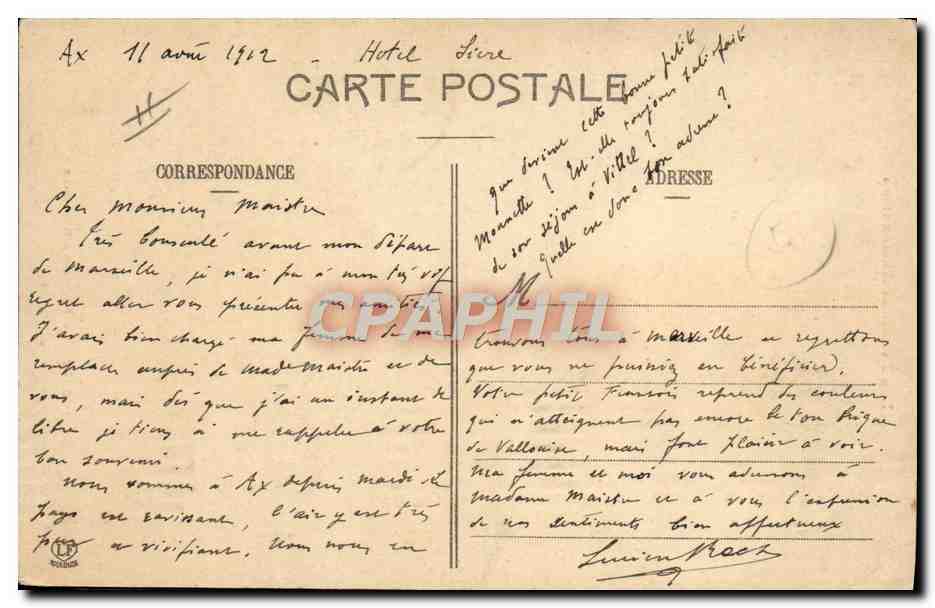 Ax 11 août 1912 - Hotel Sicre
CARTE POSTALE
CORRESPONDANCE
Cher Monsieur Maistre
Très bousculé avant mon départ
de Marseille, je n'ai pu à mon très vif
regret aller vous présenter mes amitiés.
J'avais bien chargé ma femme de me
remplacer auprès de Made Maistre et de
vous, mais dès que j'ai un instant de
libre je tiens à me rappeler à votre
bon souvenir.
Nous sommes à Ax depuis mardi. Le
pays est ravissant, l'air y est très
pur et vivifiant. Nous nous en
LF
TOULOUSE
que devient cette bonne petite
Mounette ? Est-elle toujours satisfaite
de son séjour à Vittel ?
Quelle est donc son adresse ?
ADRESSE
M
trouvons tous à merveille et regrettons
que vous ne puissiez en bénéficier.
Votre petit François reprend des couleurs
qui n'atteignent pas encore le ton brique
de Vallouise, mais font plaisir à voir.
Ma femme et moi vous adressons à
Madame Maistre et à vous l'expression
de nos sentiments bien affectueux
Lucien
CPAPHIL